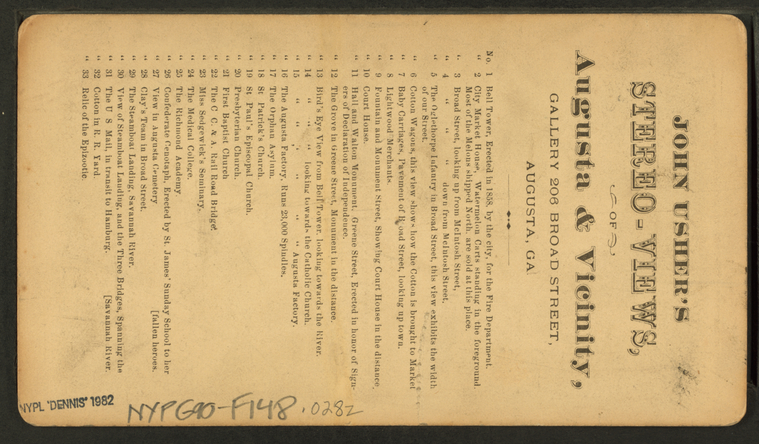 JOHN USHER'S
STEREO-VIEWS,
OF
Augusta & Vicinity,
GALLERY 206 BROAD STREET,
AUGUSTA, GA
No. 1 Bell Tower, Erected in 1858, by the city, for the Fire Department.
" 2 City Market House, Watermelon Carts standing in the foreground.
Most of the Melons shipped North, are sold at this place.
" 3 Broad Street, looking up from McIntosh Street,
" 4 " " " down from McIntosh Street.
" 5 The Oglethorpe Infantry in Broad Street, this view exhibits the width
of our Streets.
" 6 Cotton Wagons, this view shows how the Cotton is brought to Market
" 7 Baby Carriages, Pavement of Broad Street, looking up town.
" 8 Lightwood Merchants.
" 9 Fountain and Monument Street, Showing Court House in the distance,
" 10 Court House.
" 11 Hall and Walton Monument, Greene Street, Erected in honor of Sign-
ers of Declaration of Independence.
" 12 The Grove in Greene Street, Monument in the distance.
" 13 Bird's Eye View from Bell Tower, looking towards the River.
" 14 " " " looking towards the Catholic Church.
" 15 " " " " " Augusta Factory.
" 16 The Augusta Factory, Runs 23,000 Spindles,
" 17 The Orphan Asylum.
" 18 St Patrick's Church.
" 19 St. Paul's Episcopal Church.
" 20 Presbyterian Church.
" 21 First Baptist Church
" 22 The C. C. & A. Rail Road Bridge.
" 23 Miss Sedgewick's Seminary.
" 24 The Medical College.
" 25 The Richmond Academy
" 26 Confederate Cenotaph, Erected by St. James' Sunday School to her
" 27 View in Augusta Cemetery [fallen heroes.
" 28 Clay's Team in Broad Street.
" 29 The Steamboat Landing, Savannah River.
" 30 View of Steamboat Landing, and the Three Bridges, Spanning the
" 31 The U S. Mail, in transit to Hamburg. [Savannah River.
" 32 Cotton in R. R. Yard.
" 33 Relic of the Epizootic.
NYPL "DENNIS" 1982
NYPG90-F148 .028z